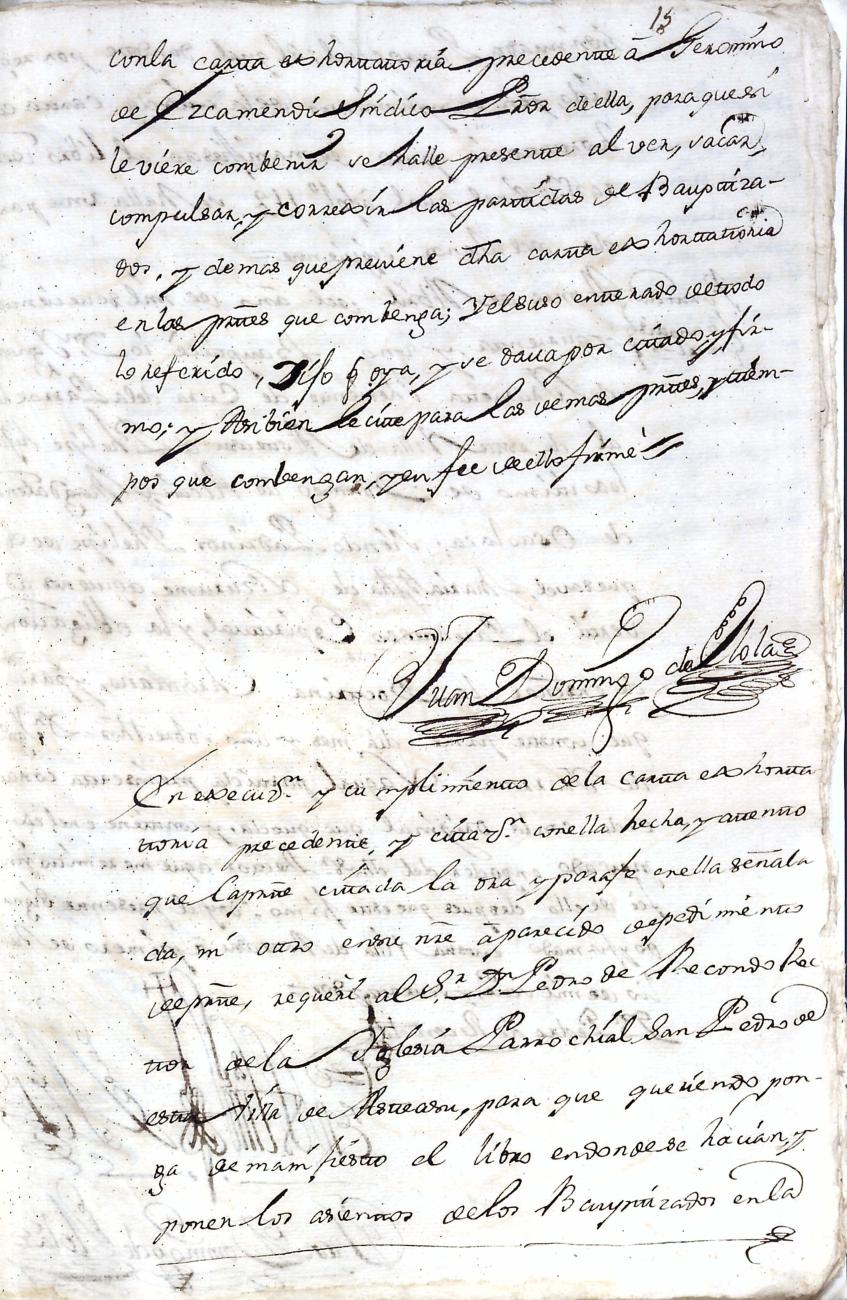 15
con la carta exhortatoria precedente â Geronimo
de Yzcamendi Sindico Pror̃ de ella, para que si
le viere combenir se halle presente al ver, sacar,
compulsar, y correxir las partidas de Bauptiza-
dos, y demas que previene dha carta exhortatoria
en las prtẽs que combenga; Y el suso enterado de todo
lo referido, Dijo q̃ oya, y se dava por citado, y fir-
mo; y Asibien le cite para las demas prtẽs, y tiem-
pos que combengan, y en fee de ello firmè
Juan Domingo de
En execuzⁿ. y cumplimiento de la carta exhorta
toria precedente, y citazⁿ. con ella hecha, y atento
que la prtẽ citada la ora y paraje en ella señala
da, ni otro en su nrẽ â parecido de pedimiento
de prtẽ, requeri al Sʳ. Dⁿ. Pedro de Recondo Rec
tor de la Yglesia Parrochial San Pedro de
esta Villa de Asteasu, para que queriendo pon-
ga de manifiesto el libro en donde se hacian, y
ponen los asientos de los Bauptizados en la